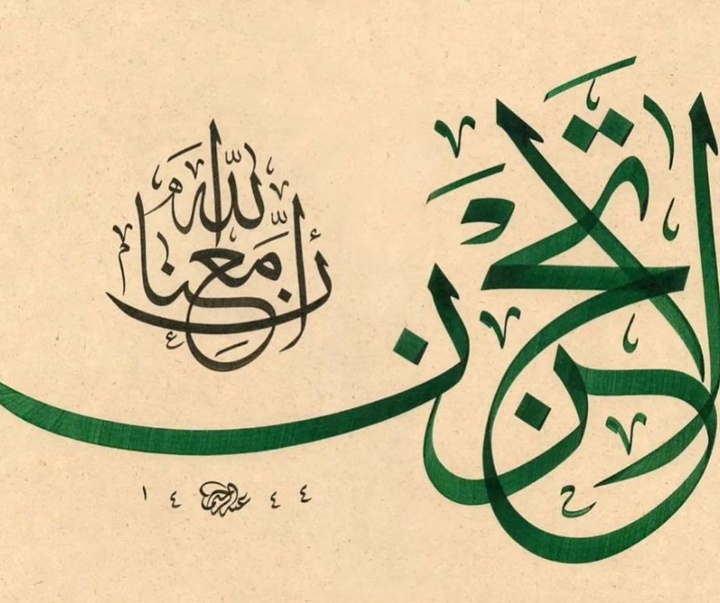 لا تحزن
أن الله معنا
١٤ ٤٤